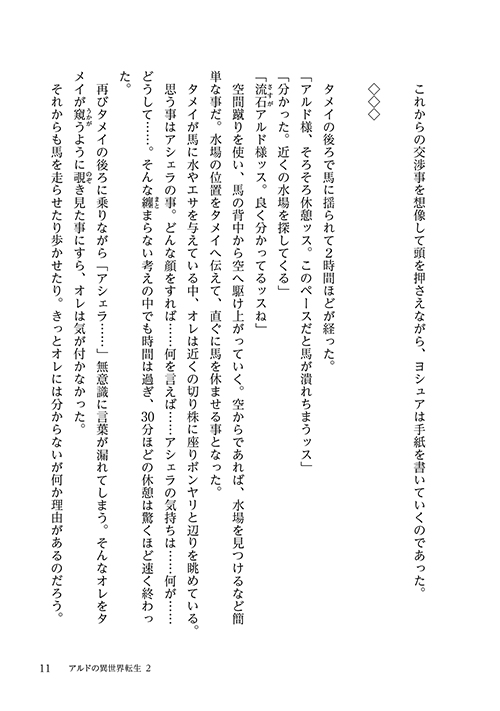 これからの交渉事を想像して頭を押さえながら、ヨシュアは手紙を書いていくのであった。
◇◇◇
タメイの後ろで馬に揺られて２時間ほどが経った。
「アルド様、そろそろ休憩ッス。このペースだと馬が潰れちまうッス」
「分かった。近くの水場を探してくる」
「流石アルド様ッス。良く分かってるッスね」
空間蹴りを使い、馬の背中から空へ駆け上がっていく。空からであれば、水場を見つけるなど簡
単な事だ。水場の位置をタメイへ伝えて、直ぐに馬を休ませる事となった。
タメイが馬に水やエサを与えている中、オレは近くの切り株に座りボンヤリと辺りを眺めている。
思う事はアシェラの事。どんな顔をすれば……何を言えば……アシェラの気持ちは……何が……
どうして……。そんな纏まらない考えの中でも時間は過ぎ、30分ほどの休憩は驚くほど速く終わっ
た。
再びタメイの後ろに乗りながら「アシェラ……」無意識に言葉が漏れてしまう。そんなオレをタ
メイが窺うように覗き見た事にすら、オレは気が付かなかった。
それからも馬を走らせたり歩かせたり。きっとオレには分からないが何か理由があるのだろう。
11 アルドの異世界転生 2